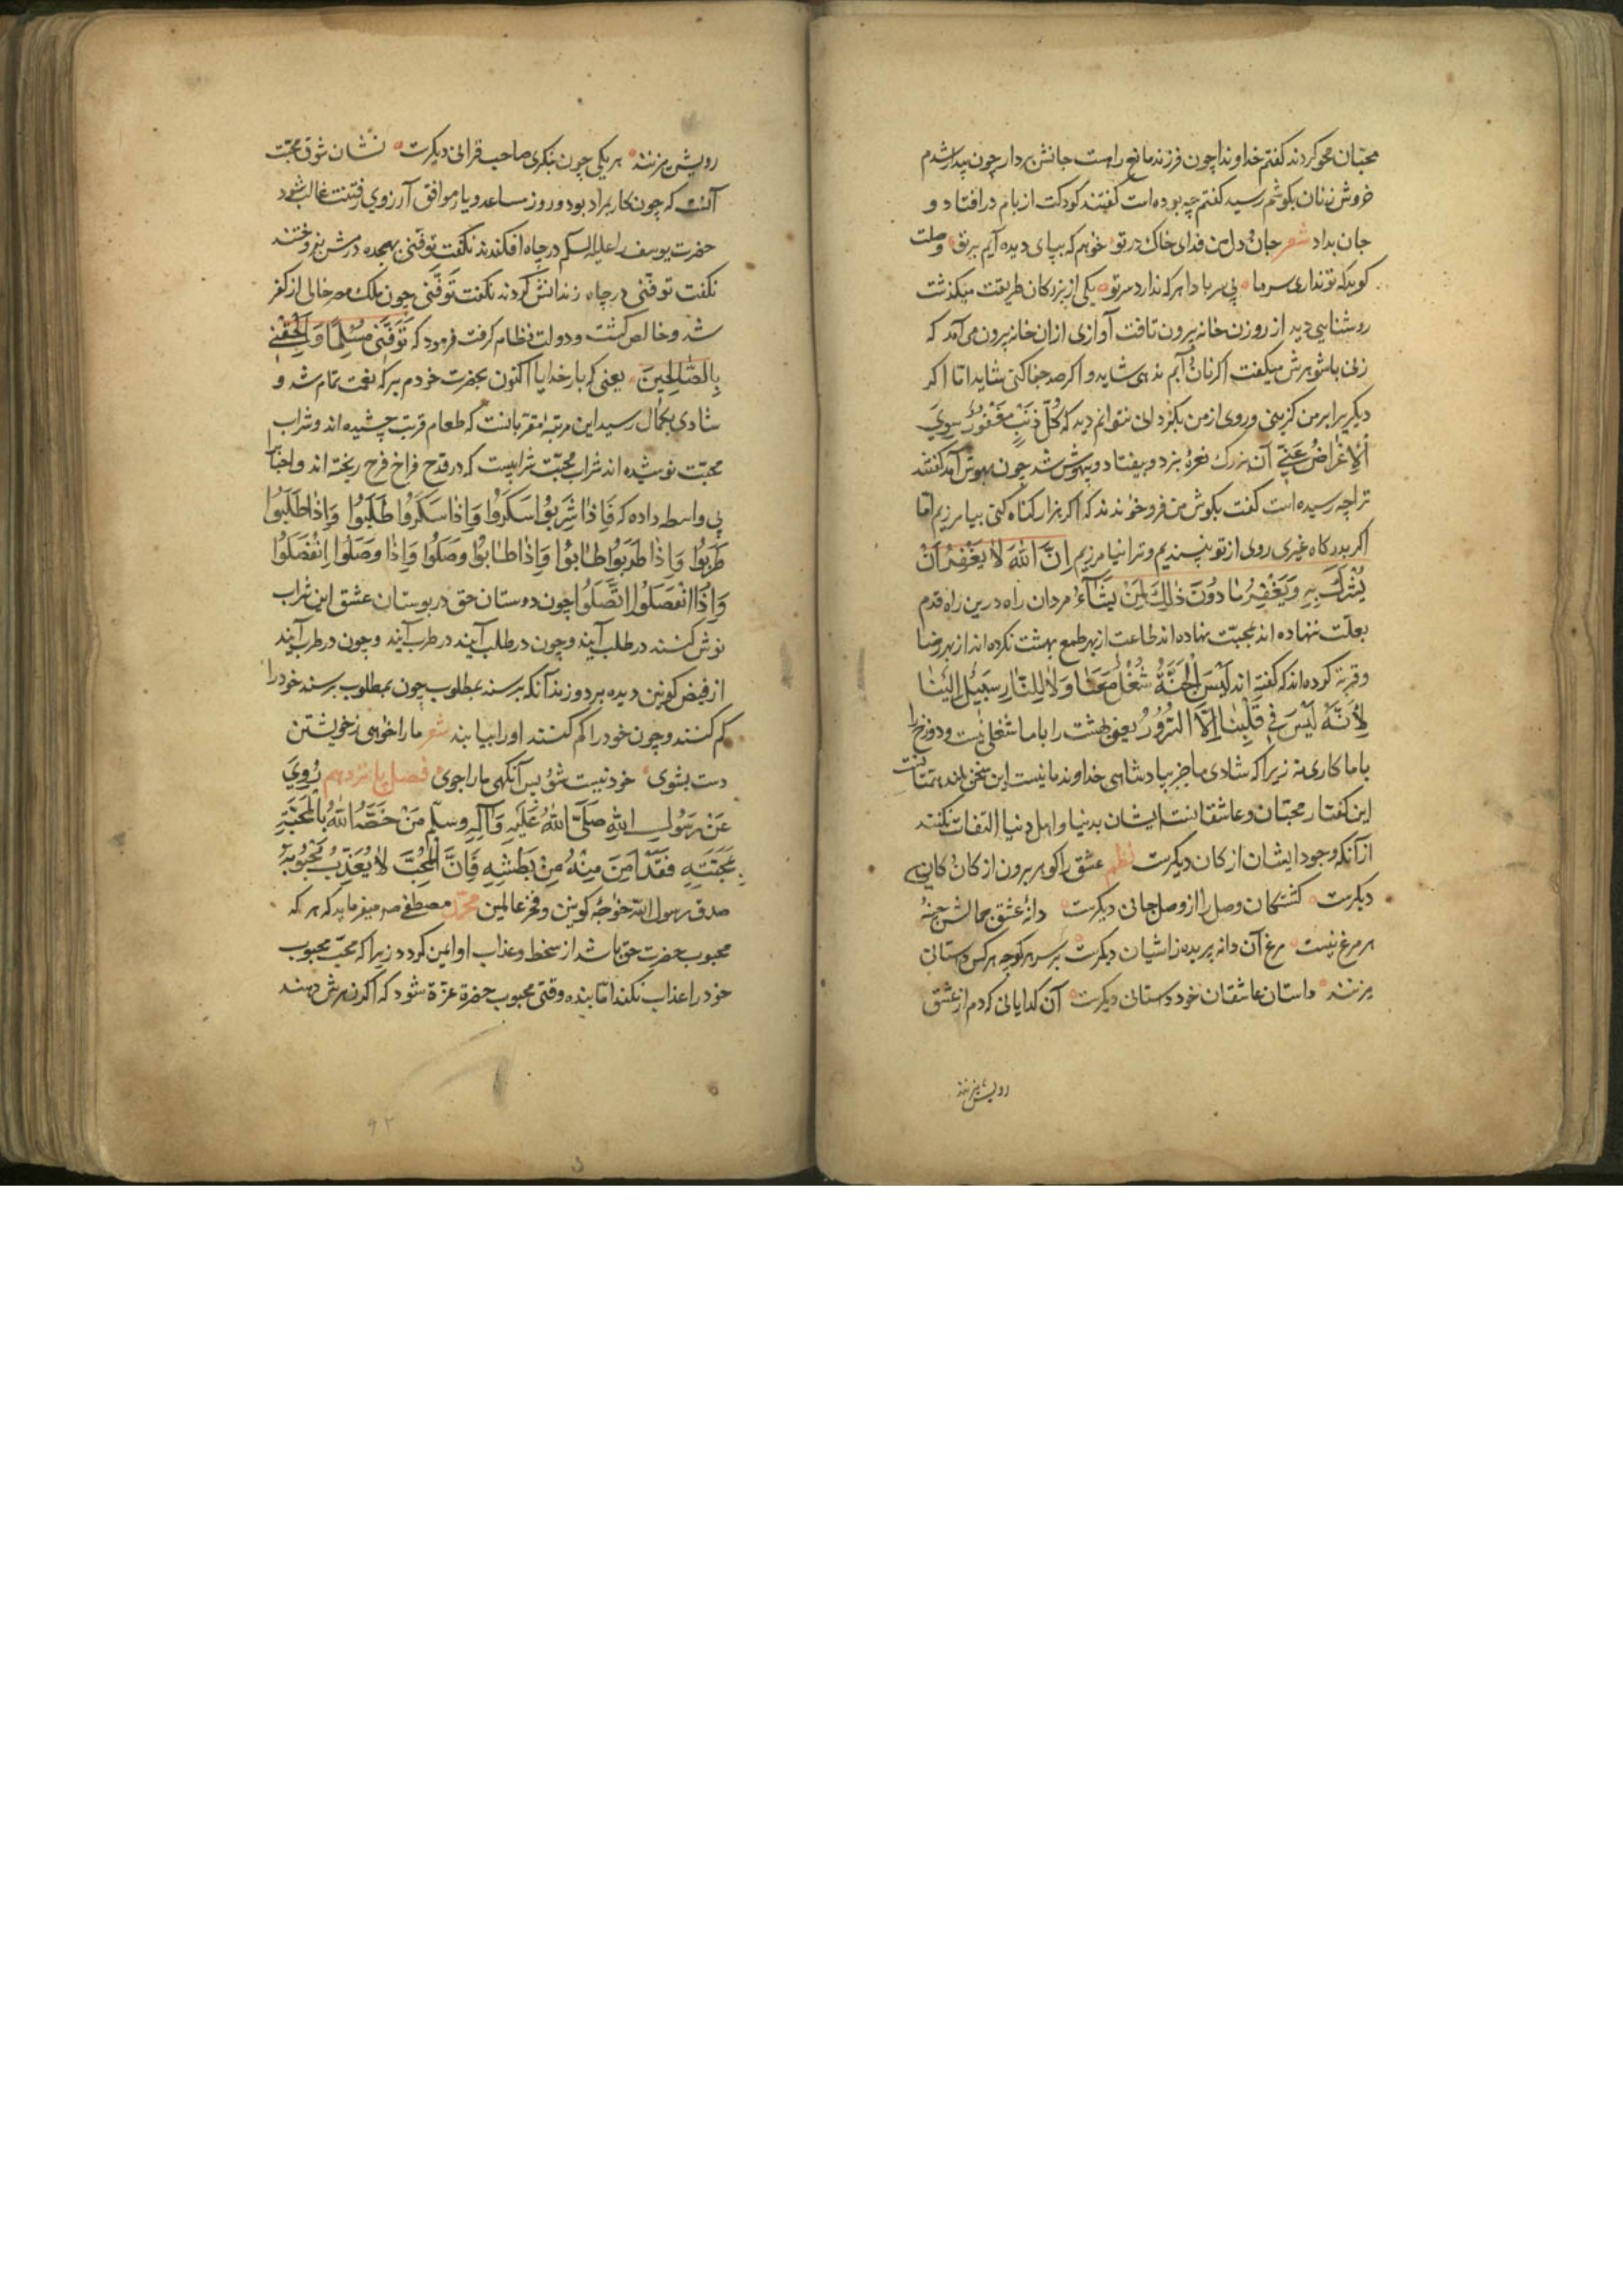 محبّان محو کردند کفتم خداوندا چون فرزند مانع راهست جانش بردار چون بیدار شدم
خروش زنان بکوشم رسید کفتم چه بوده است کفتند کودکت از بام درافتاد و
جان بداد شعر جان و دل من فدای خاک در تو خواهم که بپای دیده آیم بر تو وصلت
کوید که تو نداری سر ما بی سر بادا هر که ندارد سر تو یکی از بزرکان طریقت میکذشت
روشنایی دید از روزن خانه بیرون تافت آوازی از ان خانه بیرون می آمد که
زنی با شوهرش میکفت اکر نان و آبم ندهی شاید و اکر صد جفا کنی شاید اما اکر
دیکریرا بر من کزینی و روی از من بکردانی نتوانم دید که کُلّ ذَنْبٍ مَغْفُورٌ سِوَی
الْاِعْرَاضُ عَنّی آن بزرک نعرهٔ بزد و بیفتاد و بیهوش شد چون بهوش آمد کفتند
ترا چه رسیده است کفت بکوش من فرو خواندند که اکر هزار کناه کنی بیامرزیم اما
اکر بدرکاه غیری روی از تو نپسندیم و ترا نیامرزیم اِنَّ اللّٰهَ لَا یَغْفِرُ اَنْ
یُشْرَکَ بِهِ وَیَغْفِرُ مَا دُونَ ذٰلِکَ لِمَنْ یَشَآءُ مردان راه درین راه قدم
بعلّت ننهاده اند بمحبّت نهاده اند طاعت از بهر طمع بهشت نکرده اند از بهر رضا
و قربة کرده اند که کفته اند لَیْسَ الْجَنَّةُ شُغْلُ مَعَنَا وَلَا لِلنَّارِ سَبِیْلٌ اِلَیْنَا
لِاَنَّهُ لَیْسَ فِی قَلْبِنَا اِلَّا السُّرُوْرُ یعنی بهشت را با ما شغلی نیست و دوزخ را
با ما کاری نه زیرا که شادی ما جز بپادشاهی خداوند ما نیست این سخن بلند همتانست
این کفتار محبّان و عاشقانست ایشان بدنیا و اهل دنیا التفات نکنند
از آنکه وجود ایشان از کان دیکرست نظم عشق را کوهر برون از کان کانی
دیکرست کشتکان وصل را از وصل جانی دیکرست دانهٔ عشق جمالش چینهٔ
هر مرغ نیست مرغ آن دانه پریده ز اشیان دیکرست بر سر هر کوچه هر کس داستانی
میزنند داستان عاشقان خود داستانی دیکرست آن کدایانی که دم از عشق
رویش میزنند
رویش میزنند هر یکی چون بنکری صاحب قرانی دیکرست نشان شوق محبّت
آنست که چون کار بمراد بود و روز مساعد و یار موافق آرزوی رفتنت غالب شود
حضرت یوسف را علیه السلم در چاه افکندند نکفت توفّنی بهجده درمش بفروختند
نکفت توفّنی در چاه زندانش کردند نکفت تَوَفَّنِی چون ملک مصر خالی از کفر
شد و خالص کشت و دولت نظام کرفت فرمود که تَوَفَّنِی مُسْلِمًا وَاَلْحِقْنِی
بِالصَّالِحِینَ یعنی که بار خدایا اکنون بحضرت خودم بر که نعمت تمام شد و
شادی بکمال رسید این مرتبهٔ مقرّبانست که طعام قربت چشیده اند و شراب
محبّت نوشیده اند شراب محبّت شرابیست که در قدح فراخ فرح ریخته اند و احبّا را
بی واسطه داده که فَاِذَا شَرِبُوا سَکَرُوا وَاِذَا سَکَرُوا طَلَبُوا وَاِذَا طَلَبُوا
طَرَبُوا وَاِذَا طَرَبُوا طَابُوا وَاِذَا طَابُوا وَصَلُوا وَاِذَا وَصَلُوا اِنْفَصَلُوا
وَاِذَا انْفَصَلُوا اتَّصَلُوا چون دوستان حق در بوستان عشق این شراب
نوش کنند در طلب آیند و چون در طلب آیند در طرب آیند و چون در طرب آیند
از فیض کونین دیده بر دوزند آنکه برسند بمطلوب چون بمطلوب برسند خود را
کم کنند و چون خود را کم کنند او را بیابند شعر ما را خواهی ز خویشتن
دست بشوی خود نیست شو پس آنکهی ما را جوی فصل پانزدهم رُوِیَ
عَنْ رَسُولِ اللّٰهِ صَلَّی اللّٰهُ عَلَیْهِ وَآلِهِ وسلّم مَنْ خَصَّهُ اللّٰهُ بِالْمَحَبَّةِ
بِمَحَبَّتِهِ فَقَدْ اَمِنَ مِنْهُ مِنْ بَطْشِهِ فَاِنَّ الْمُحِبَّ لَا یُعَذِّبُ مَحْبُوبَهُ
صدق رسول اللّه خواجهٔ کونین و فخر عالمین محمّد مصطفی صم میفرماید که هر که
محبوب حضرت حق باشد از سخط و عذاب او ایمن کردد زیرا که محبّ محبوب
خود را عذاب نکند اما بنده وقتی محبوب حضرة عزّة شود که اکر زهرش دهند
۹۲